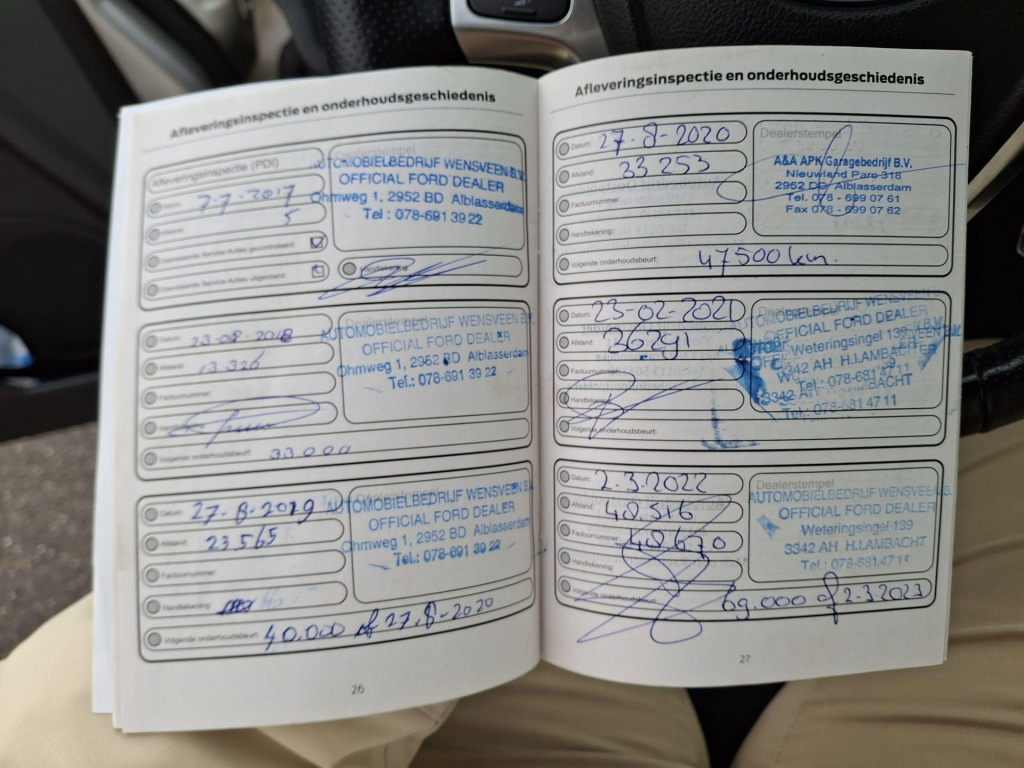 Afleveringsinspectie en onderhoudsgeschiedenis
Afleveringsinspectie (PDI)
Dealerstempel
Datum: 7-7-2017
5
AUTOMOBIELBEDRIJF WENSVEEN B.V.
OFFICIAL FORD DEALER
Ohmweg 1, 2952 BD Alblasserdam
Tel : 078-691 39 22
Datum: 23-08-2018
Afstand: 13.326
Factuurnummer:
Volgende onderhoudsbeurt: 33.000
Dealerstempel
AUTOMOBIELBEDRIJF WENSVEEN B.V.
OFFICIAL FORD DEALER
Ohmweg 1, 2952 BD Alblasserdam
Tel.: 078-691 39 22
Datum: 27-8-2019
Afstand: 23565
Factuurnummer:
Handtekening:
Volgende onderhoudsbeurt: 40.000 of 27-8-2020
Dealerstempel
AUTOMOBIELBEDRIJF WENSVEEN B.V.
OFFICIAL FORD DEALER
Ohmweg 1, 2952 BD Alblasserdam
Tel.: 078-691 39 22
26
Afleveringsinspectie en onderhoudsgeschiedenis
Datum: 27-8-2020
Afstand: 33 253
Factuurnummer:
Handtekening:
Volgende onderhoudsbeurt: 47500 km.
Dealerstempel
A&A APK Garagebedrijf B.V.
Nieuwland Parc 318
2952 DD Alblasserdam
Tel. 078 - 699 07 61
Fax 078 - 699 07 62
Datum: 23-02-2021
Afstand: 36291
Factuurnummer:
Handtekening:
Volgende onderhoudsbeurt:
AUTOMOBIELBEDRIJF WENSVEEN B.V.
OFFICIAL FORD DEALER
Weteringsingel 139
3342 AH H.I.AMBACHT
Tel.: 078-681 47 11
Datum: 2-3-2022
Afstand: 48.516
Factuurnummer: 48670
Handtekening:
Volgende onderhoudsbeurt: 69.000 of 2-3-2023
Dealerstempel
AUTOMOBIELBEDRIJF WENSVEEN B.V.
OFFICIAL FORD DEALER
Weteringsingel 139
3342 AH H.I.AMBACHT
Tel.: 078-681 47 11
27